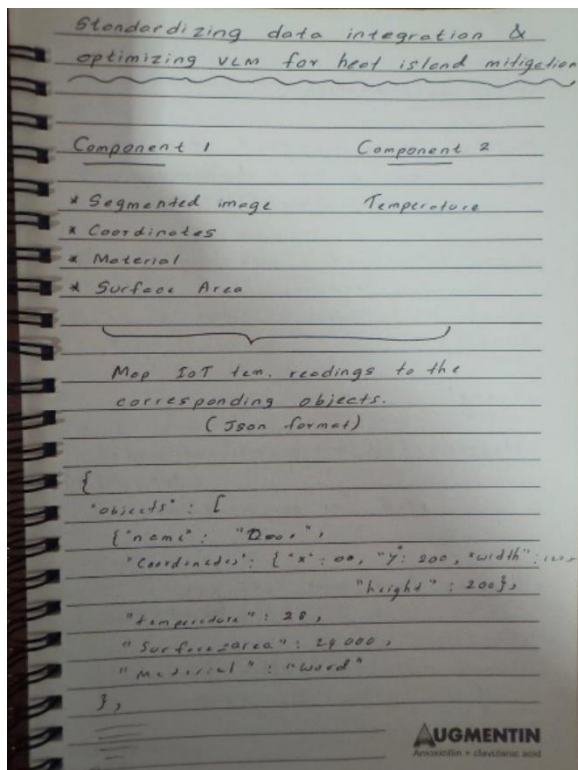 Standardizing data integration &
optimizing VLM for heat island mitigation
Component 1 Component 2
* Segmented image Temperature
* Coordinates
* Material
* Surface Area
Map IoT tem. readings to the
corresponding objects.
(Json format)
{
"objects" : [
{ "name" : "Door",
"Coordinates" : { "x" : 00, "y" : 200, "width" :
"height" : 200},
"temperature" : 28,
"Surface_area" : 24000,
"Material" : "Wood"
},
AUGMENTIN
Amoxicillin + clavulanic acid